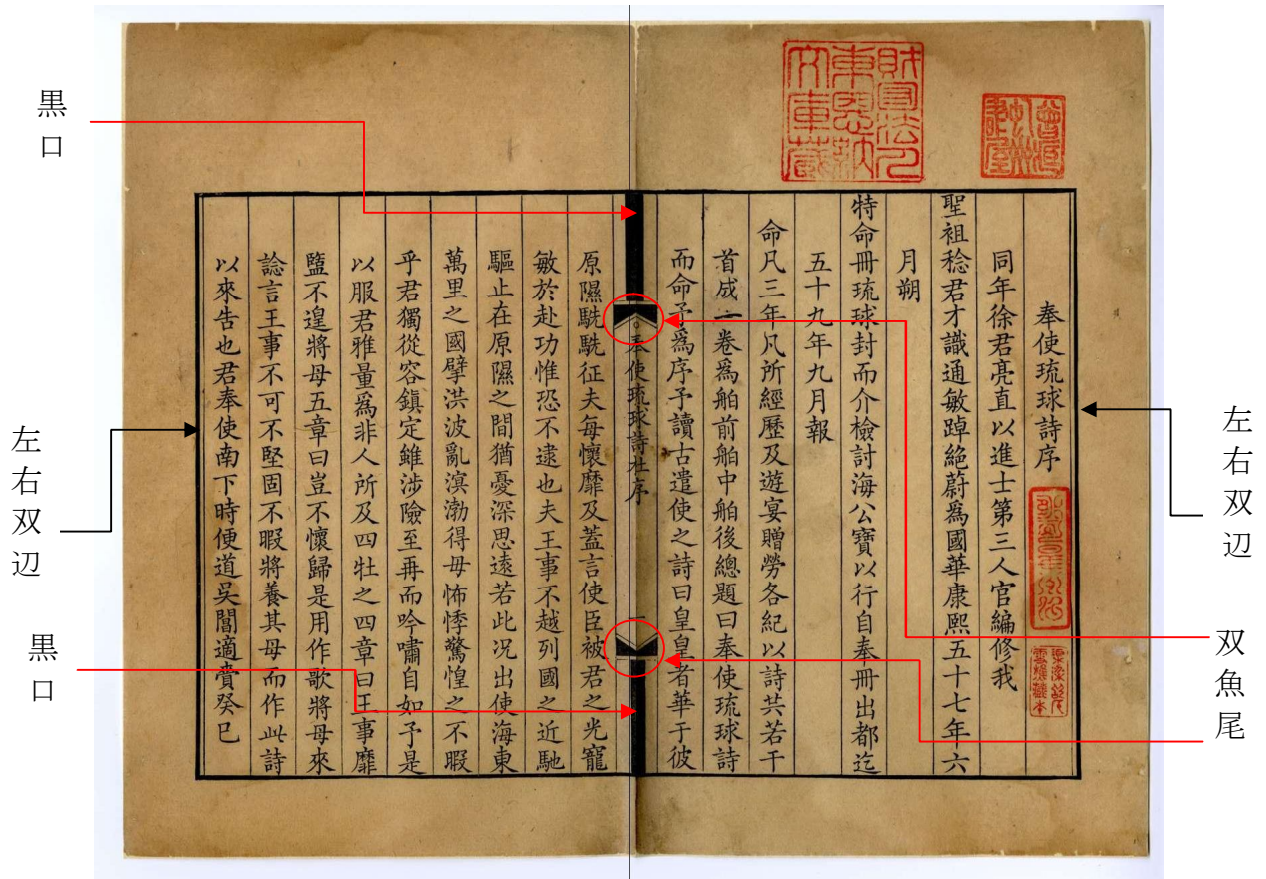 財團法人
東恩納
文庫蔵
奉使琉球詩序
同年徐君亮直以進士第三人官編修我
聖祖稔君才識通敏踔絶蔚爲國華康熙五十七年六
月朔
特命冊琉球封而介檢討海公寶以行自奉冊出都迄
五十九年九月報
命凡三年凡所經歷及遊宴贈勞各紀以詩共若干
首成一卷爲舶前舶中舶後總題曰奉使琉球詩
而命予爲序予讀古遣使之詩曰皇皇者華于彼
奉使琉球詩 序
原隰駪駪征夫每懷靡及蓋言使臣被君之光寵
敏於赴功惟恐不逮也夫王事不越列國之近馳
驅止在原隰之間猶憂深思遠若此况出使海東
萬里之國擘洪波亂溟渤得毋怖悸驚惶之不暇
乎君獨從容鎮定雖涉險至再而吟嘯自如予是
以服君雅量爲非人所及四牡之四章曰王事靡
盬不遑將母五章曰豈不懷歸是用作歌將母來
諗言王事不可不堅固不暇將養其母而作此詩
以來告也君奉使南下時便道吳閶適賫癸巳
左右双辺
双魚尾
黒口
左右双辺
黒口